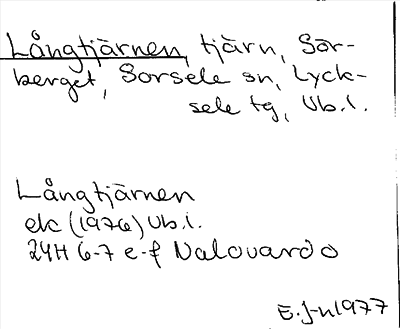 Långtjärnen, tjärn, Sör-
berget, Sorsele sn, Lyck-
sele tg, Vb.l.
Långtjärnen
ek (1976) Vb.l.
24H 6-7 e-f Nalovardo
E.J-n 1977